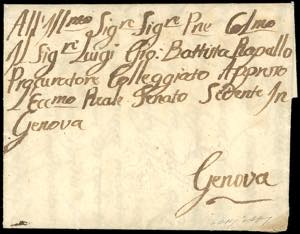 All'Ill.mo Sig.re Sig.re Pne Col.mo
Il Sig.re Luigi Gio: Battista Rapallo
Procuratore Colleggiato Appresso
L'Ecc.mo Reale Senato Sedente In
Genova
Genova